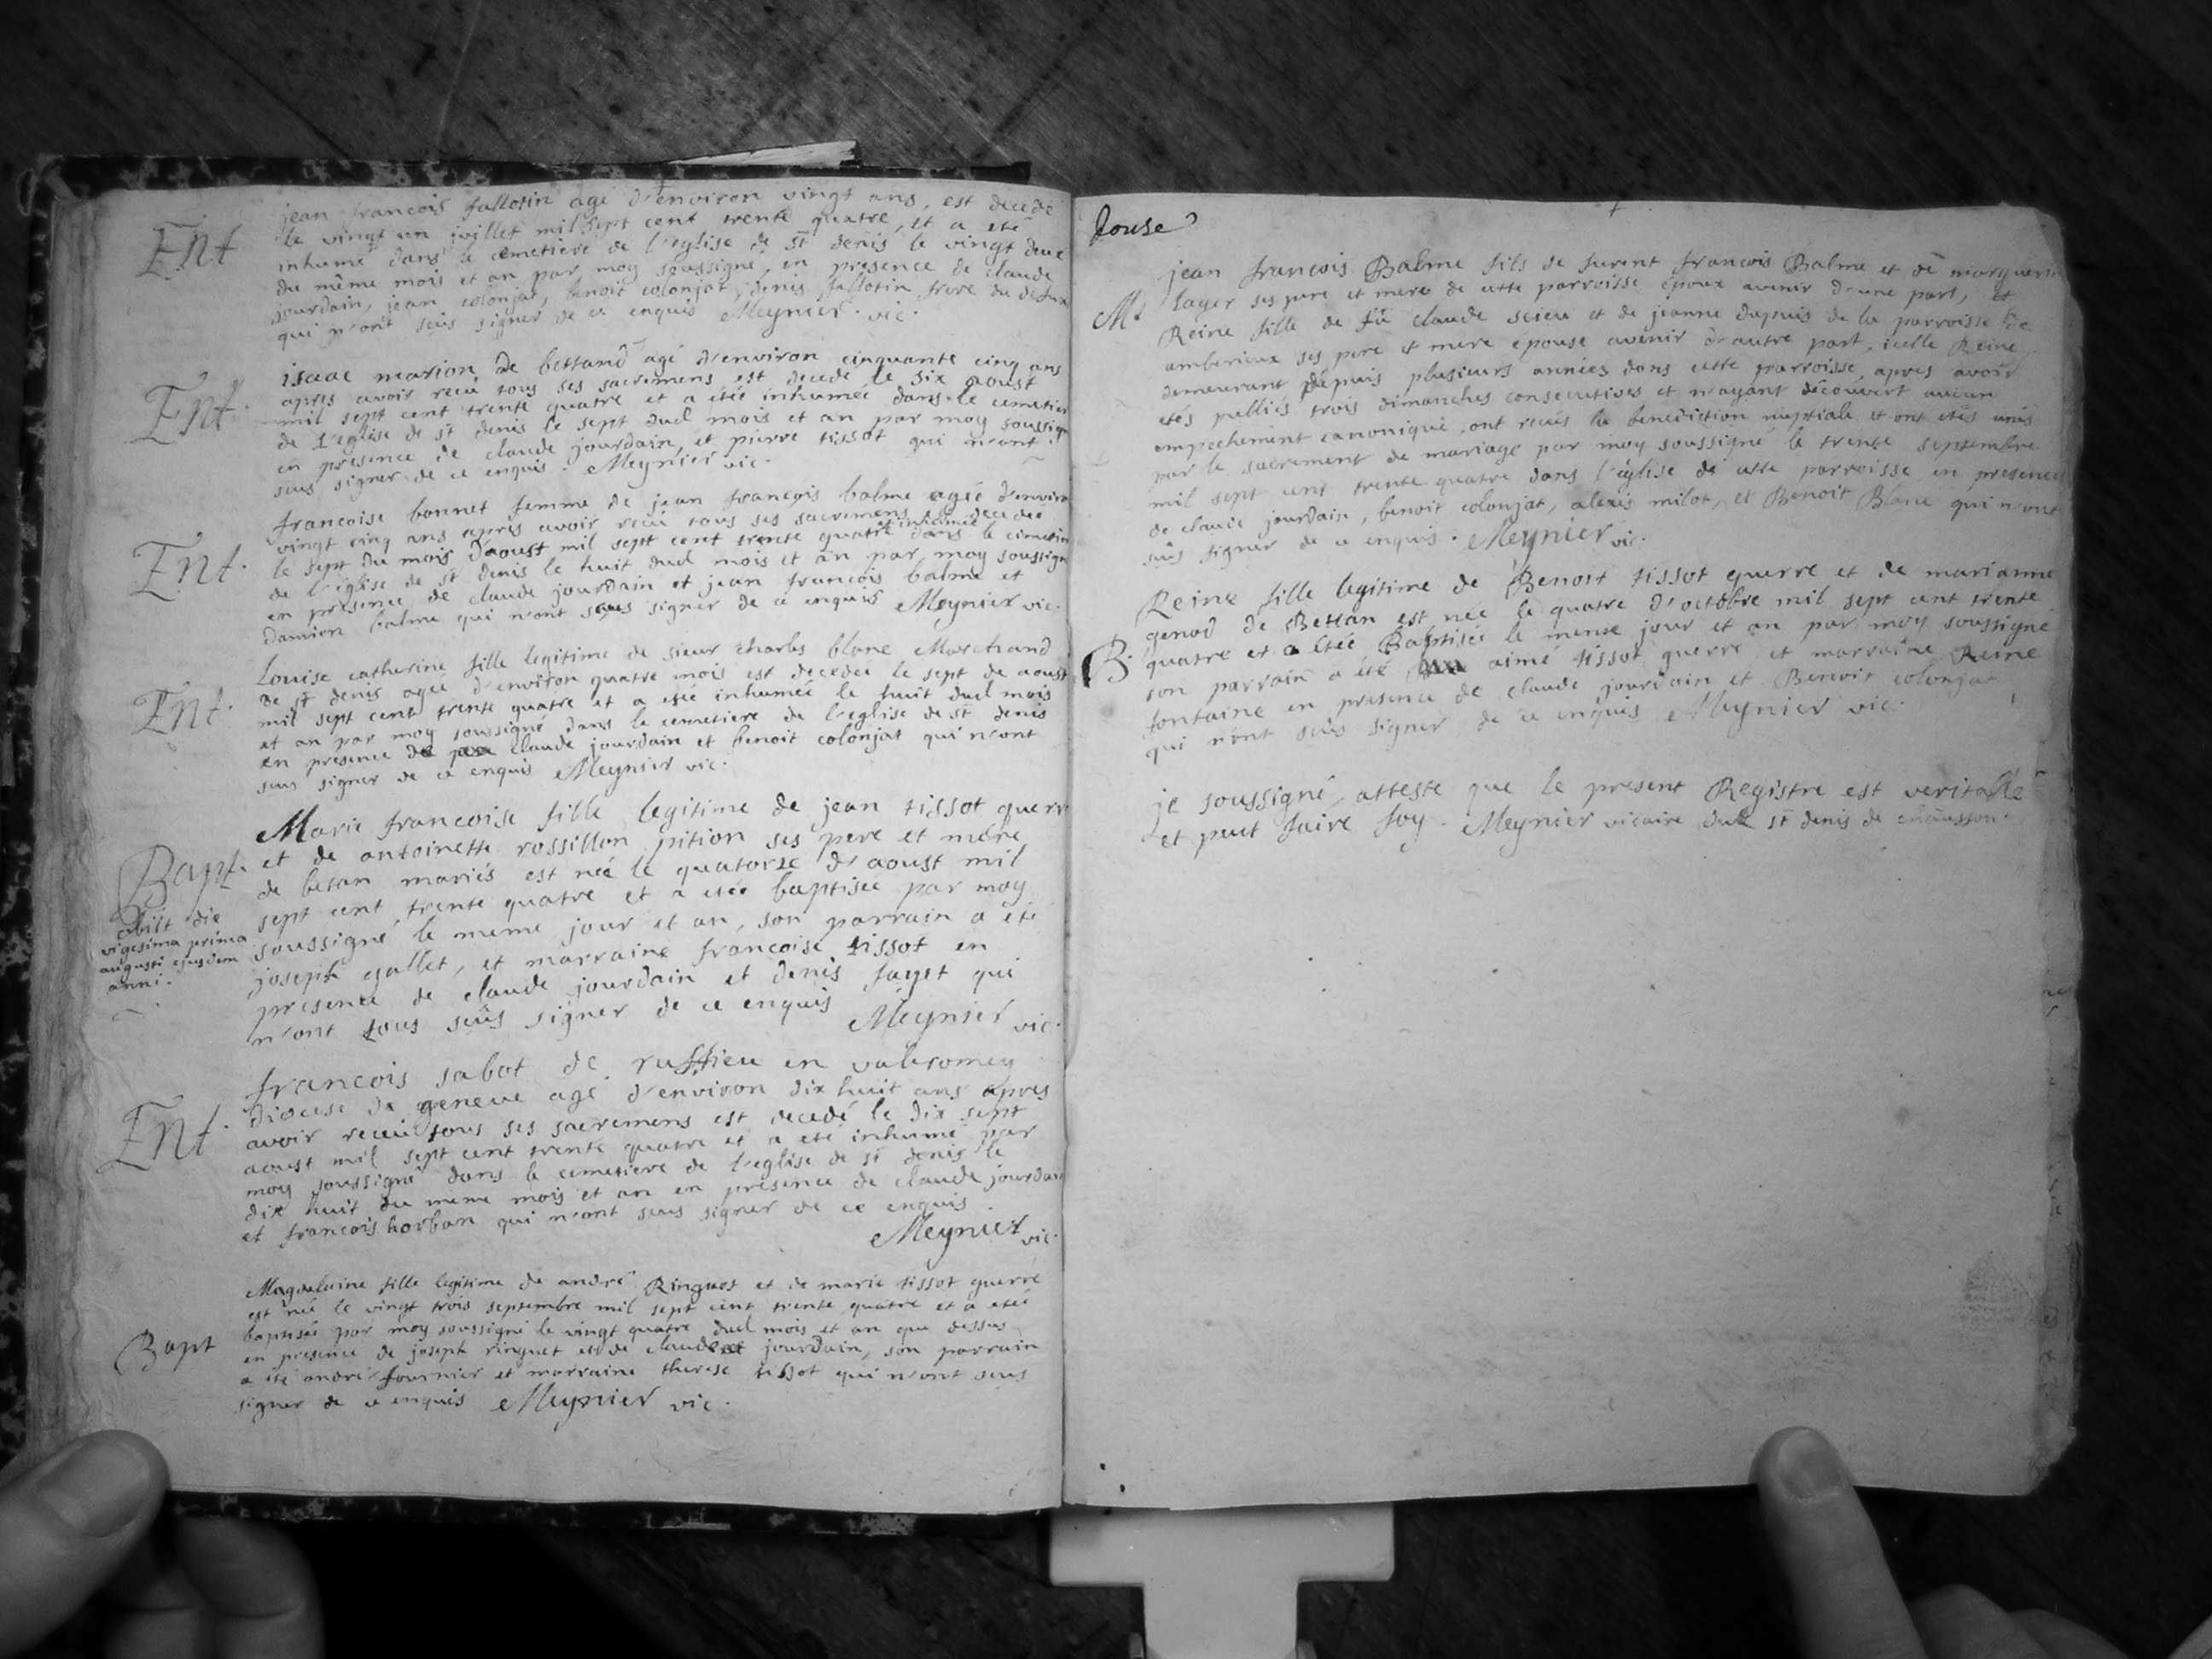 Ent
jean francois fallotin agé d'environ vingt ans, est decedé
le vingt un juillet mil sept cent trente quatre, et a eté
inhumé dans le cemetiere de l'eglise de st denis le vingt deux
du même mois et an par moy soussigné, en presence de claude
jourdain, jean colonjat, benoit colonjat, denis fallotin frere du defunt
qui n'ont seüs signer de ce enquis Meynier vic.
Ent.
isaac marion de bettand agé d'environ cinquante cinq ans
apres avoir reçû tous ses sacremens est decedé le six aoust
mil sept cent trente quatre et a étéé inhumeé dans le cemetier
de l'eglise de st denis le sept dud mois et an par moy soussign
en presence de claude jourdain, et pierre tissot qui n'ont
seus signer de ce enquis. Meynier vic.
Ent.
francoise bonnet femme de jean françois balme ageé d'enviro
vingt cinq ans apres avoir reçû tous ses sacremens est decedeé
et inhumeé
le sept du mois d'aoust mil sept cent trente quatre dans le cimetier
de l'eglise de st denis le huit dud mois et an par moy soussign
en presence de claude jourdain et jean francois balme et
damien balme qui n'ont seus signer de ce enquis Meynier vic.
Ent.
Louise catherine fille legitime de sieur charles blanc Marchand
de st denis ageé d'environ quatre mois est decedeé le sept de aoust
mil sept cent trente quatre et a eteé inhumeé le huit dud mois
et an par moy soussigné dans le cemetiere de l'eglise de st denis
en presence de claude jourdain et benoit colonjat qui n'ont
seus signer de ce enquis Meynier vic.
Bapt.
Marie francoise fille legitime de jean tissot querre
et de antoinette rossillon pition ses pere et mére
de betan mariés est neé le quatorze d'aoust mil
sept cent trente quatre et a eteé baptiseé par moy
soussigné le meme jour et an, son parrain a été
joseph gallet, et marraine francoise tissot en
presence de claude jourdain et denis sayet qui
n'ont tous seüs signer de ce enquis Meynier vic.
obiit die
vigesima prima
augusti ejusdem
anni.
Ent.
francois sabot de ruffieu en valeromey
diocese de geneve agé d'environ dix huit ans apres
avoir reçeü tous ses sacremens est decedé le dix sept
aoust mil sept cent trente quatre et a eté inhumé par
moy soussigné dans le cemetiere de l'eglise de st denis le
dix huit du meme mois et an en presence de claude jourdain
et francois horban qui n'ont seus signer de ce enquis
Meynier vic.
Bapt
Magdelaine fille legitime de andré Ringuet et de marie tissot querre
est neé le vingt trois septembre mil sept cent trente quatre et a eteé
baptiseé par moy soussigné le vingt quatre dud mois et an que dessus
en presence de joseph ringuet et de claude jourdain, son parrain
a eté andré fournier et marraine therese tissot qui n'ont seus
signer de ce enquis Meynier vic.
douse
Mt
jean francois Balme fils de furent francois Balme et de marguerit
lager ses pere et mere de cette parroisse époux avenir d'une part, et
Reine fille de fû claude scieu et de jeanne dupuis de la parroisse de
amberieux ses pere et mere epouse avenir d'autre part, icelle Reine
demeurant dépuis plusieurs années dans cette parroisse, apres avoir
etés publiés trois dimanches consecutives et n'ayant découvert aucun
empechement canonique, ont reçûs la benediction nuptiale et ont etés unis
par le sacrement de mariage par moy soussigné le trente septembre
mil sept cent trente quatre dans l'église de cette parroisse en presence
de claude jourdain, benoit colonjat, alexis milot, et Benoit Blanc qui n'ont
sûs signer de ce enquis. Meynier vic.
B.
Reine fille legitime de Benoit tissot querre et de marianne
genod de Bettan est neé le quatre d'octobre mil sept cent trente
quatre et a étéé Baptiseé le meme jour et an par moy soussigne
son parrain a été aimé tissot querre et marraine Reine
fontaine en presence de claude jourdain et Benoit colonjat
qui n'ont seûs signer de ce enquis Meynier vic.
je soussigné, atteste que le present Registre est veritable
et peut faire foy. Meynier vicaire dud st denis de chausson